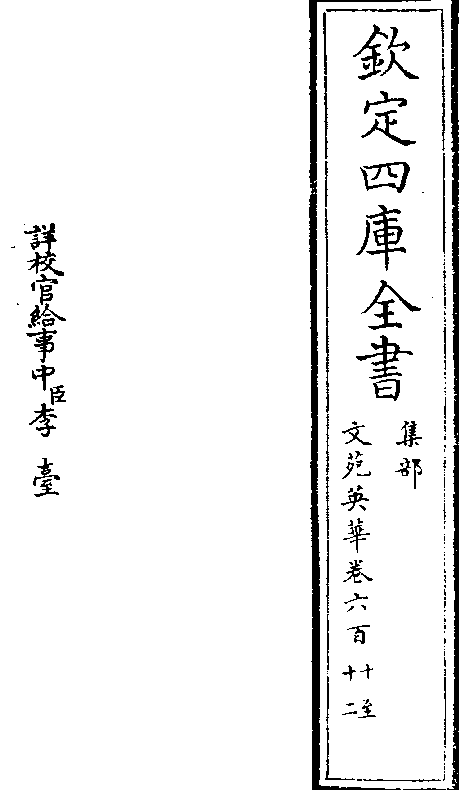 欽定四庫全書
集部
文苑英華卷六百十至
十二
詳校官給事中臣李臺